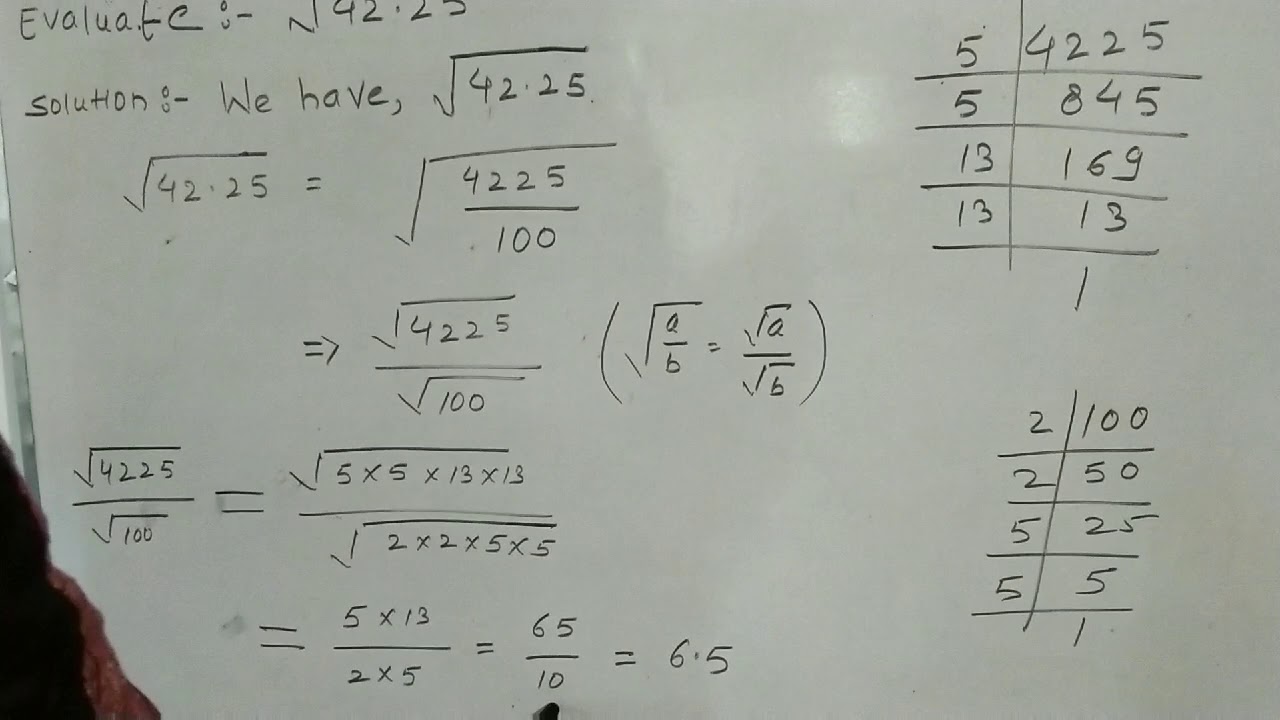 Evaluate :- √42.25
Solution :- We have, √42.25
√42.25 = √(4225/100)
=> √4225/√100 (√(a/b) = √a/√b)
√4225/√100 = √(5×5×13×13)/√(2×2×5×5)
= (5×13)/(2×5) = 65/10 = 6.5
5 | 4225
5 | 845
13 | 169
13 | 13
1
2 | 100
2 | 50
5 | 25
5 | 5
1